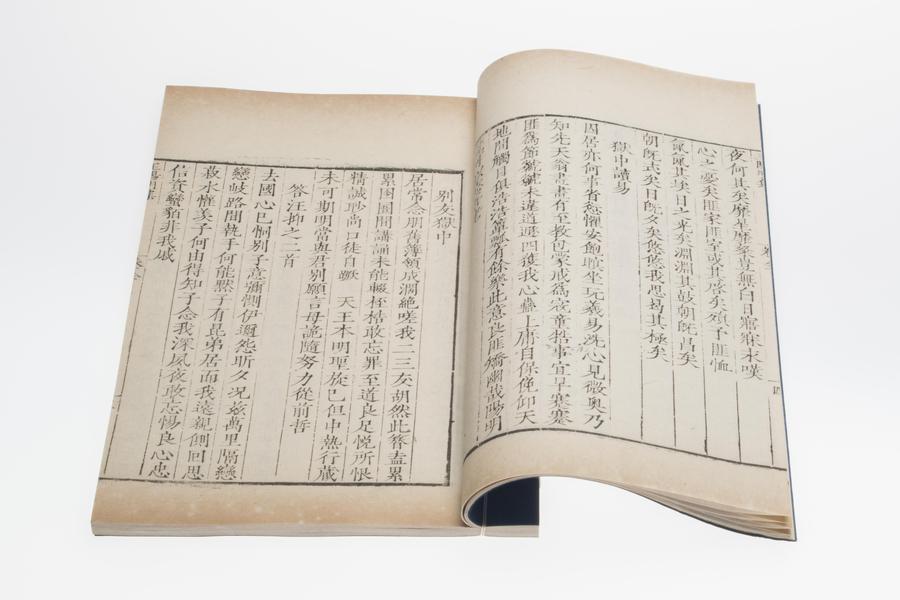 夜何其矣靡星靡粲豈無白日寤寐永嘆
心之憂矣匪家匪室或其啓矣殞予匪恤
氤氳其埃日之光矣淵淵其鼓朝旣昌矣
朝旣式矣日旣夕矣悠悠我思曷其極矣
獄中讀易
囚居亦何事省愆懼安飽瞑坐玩羲易洗心見微奧乃
知先天翁畫畫有至教包蒙戒爲寇童牿事宜早蹇蹇
匪爲節虩虩未違道遯四獲我心蠱上庸自保俛仰天
地間觸目俱浩浩簞瓢有餘樂此意良匪矯幽哉陽明
別友獄中
居常念朋舊簿領成濶絶嗟我二三友胡然此簪盍累
累囹圄間講誦未能輟桎梏敢忘罪至道良足悅所恨
精誠眇尚口徒自蹶 天王本明聖旋已但中熱行藏
未可期明當與君別願言毋詭隨努力從前哲
答汪抑之三首
去國心已恫別子意彌惻伊邇怨昕夕况兹萬里隔戀
戀岐路間執手何能默子有昆弟居而我遠親側回思
菽水懽羨子何由得知子念我深夙夜敢忘惕良心忠
信資蠻貊非我戚